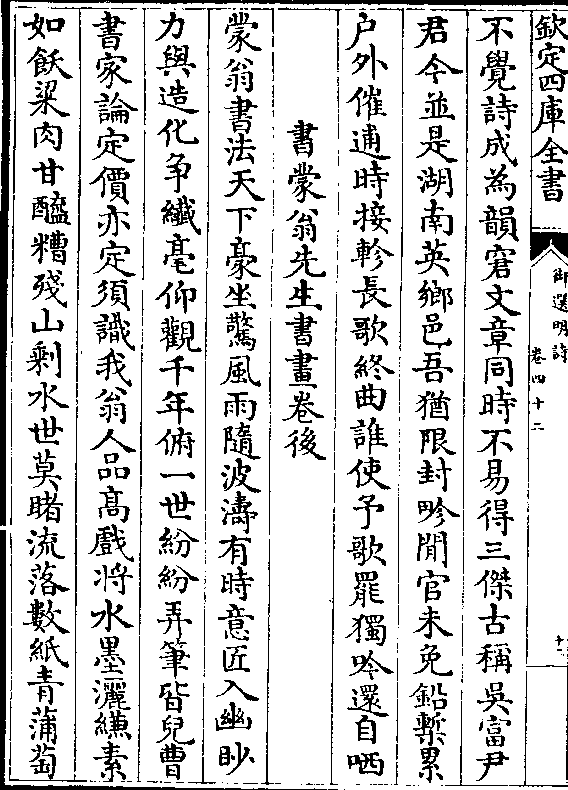 欽定四庫全書
御選明詩
卷四十二
不覺詩成為韻窘文章同時不易得三傑古稱吳富尹
君今並是湖南英鄉邑吾猶限封畛閒官未免鉛槧累
户外催逋時接軫長歌終曲誰使予歌罷獨吟還自哂
書蒙翁先生書畫卷後
蒙翁書法天下豪坐驚風雨隨波濤有時意匠入幽眇
力與造化争纎毫仰觀千年俯一世紛紛弄筆皆兒曹
書家論定價亦定須識我翁人品髙戲將水墨灑縑素
如飫粱肉甘醨糟殘山剩水世莫睹流落數紙青蒲萄